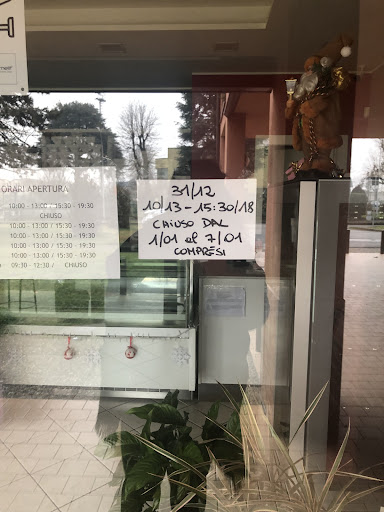 ORARI APERTURA
10:00 - 13:00 / 15:30 - 19:30
CHIUSO
10:00 - 13:00 / 15:30 - 19:30
10:00 - 13:00 / 15:30 - 19:30
10:00 - 13:00 / 15:30 - 19:30
09:30 - 12:30 / CHIUSO
31/12
10/13 - 15:30/18
CHIUSO DAL
1/01 al 7/01
COMPRESI